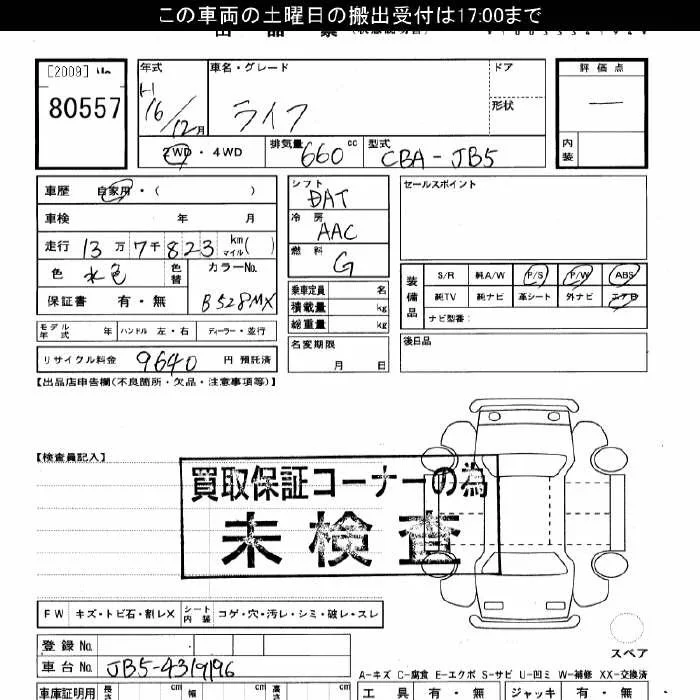 この車両の土曜日の搬出受付は17:00まで
[2009]
80557
年式
H
16/12月
車名・グレード
ライフ
ドア
形状
評価点
―
内装
2WD・4WD
排気量 660 cc
型式 CBA-JB5
車歴 自家用・( )
車検 年 月
走行 13万7千823 km マイル( )
色 水色
色替
カラーNo. B528MX
保証書 有・無
シフト DAT
冷房 AAC
燃料 G
乗車定員 名
積載量 kg
総重量 kg
名変期限 月 日
セールスポイント
装備品
S/R 純A/W P/S P/W ABS
純TV 純ナビ 革シート 外ナビ エアB
ナビ型番:
後日品
モデル年式 年 ハンドル 左・右 ディーラー・並行
リサイクル料金 9640 円 預託済
【出品店申告欄(不良箇所・欠品・注意事項等)】
【検査員記入】
買取保証コーナーの為
未検査
FW キズ・トビ石・割レX シート内装 コゲ・穴・汚レ・シミ・破レ・スレ
登録No.
車台No. JB5-4319196
スペア
A-キズ C-腐食 E-エクボ S-サビ U-凹ミ W-補修 XX-交換済
車庫証明用 長さ cm 幅 cm 高さ cm
工具 有・無 ジャッキ 有・無